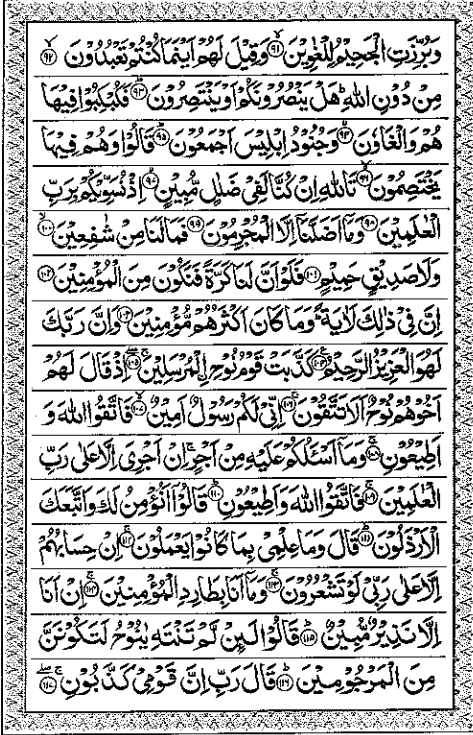 وَبُرِّزَتِ الْجَحِيْمُ لِلْغٰوِيْنَ ۙ‏﴿۹۱﴾ وَقِيْلَ لَهُمْ اَيْنَمَا كُنْتُمْ تَعْبُدُوْنَ ۙ‏﴿۹۲﴾
مِنْ دُوْنِ اللّٰهِؕ هَلْ يَنْصُرُوْنَكُمْ اَوْ يَنْتَصِرُوْنَ ؕ‏﴿۹۳﴾ فَكُبْكِبُوْا فِيْهَا
هُمْ وَالْغَاوٗنَ ۙ‏﴿۹۴﴾ وَجُنُوْدُ اِبْلِيْسَ اَجْمَعُوْنَ ؕ‏﴿۹۵﴾ قَالُوْا وَهُمْ فِيْهَا
يَخْتَصِمُوْنَ ۙ‏﴿۹۶﴾ تَاللّٰهِ اِنْ كُنَّا لَفِيْ ضَلٰلٍ مُّبِيْنٍ ۙ‏﴿۹۷﴾ اِذْ نُسَوِّيْكُمْ بِرَبِّ
الْعٰلَمِيْنَ ‏﴿۹۸﴾ وَمَاۤ اَضَلَّنَاۤ اِلَّا الْمُجْرِمُوْنَ ‏﴿۹۹﴾ فَمَا لَنَا مِنْ شٰفِعِيْنَ ۙ‏﴿۱۰۰﴾
وَلَا صَدِيْقٍ حَمِيْمٍ ‏﴿۱۰۱﴾ فَلَوْ اَنَّ لَنَا كَرَّةً فَنَكُوْنَ مِنَ الْمُؤْمِنِيْنَ ‏﴿۱۰۲﴾
اِنَّ فِيْ ذٰلِكَ لَاٰيَةً ؕ وَمَا كَانَ اَكْثَرُهُمْ مُّؤْمِنِيْنَ ‏﴿۱۰۳﴾ وَاِنَّ رَبَّكَ
لَهُوَ الْعَزِيْزُ الرَّحِيْمُ ‏﴿۱۰۴﴾ كَذَّبَتْ قَوْمُ نُوْحِ اِ۟لْمُرْسَلِيْنَ ۚ‏﴿۱۰۵﴾ اِذْ قَالَ لَهُمْ
اَخُوْهُمْ نُوْحٌ اَلَا تَتَّقُوْنَ ۚ‏﴿۱۰۶﴾ اِنِّيْ لَكُمْ رَسُوْلٌ اَمِيْنٌ ۙ‏﴿۱۰۷﴾ فَاتَّقُوا اللّٰهَ وَ
اَطِيْعُوْنِ ۚ‏﴿۱۰۸﴾ وَمَاۤ اَسْـَٔلُكُمْ عَلَيْهِ مِنْ اَجْرٍۚ اِنْ اَجْرِيَ اِلَّا عَلٰى رَبِّ
الْعٰلَمِيْنَ ۚ‏﴿۱۰۹﴾ فَاتَّقُوا اللّٰهَ وَاَطِيْعُوْنِ ؕ‏﴿۱۱۰﴾ قَالُوْۤا اَنُؤْمِنُ لَكَ وَاتَّبَعَكَ
الْاَرْذَلُوْنَ ؕ‏﴿۱۱۱﴾ قَالَ وَمَا عِلْمِيْ بِمَا كَانُوْا يَعْمَلُوْنَ ۚ‏﴿۱۱۲﴾ اِنْ حِسَابُهُمْ
اِلَّا عَلٰى رَبِّيْ لَوْ تَشْعُرُوْنَ ۚ‏﴿۱۱۳﴾ وَمَاۤ اَنَا بِطَارِدِ الْمُؤْمِنِيْنَ ۚ‏﴿۱۱۴﴾ اِنْ اَنَا
اِلَّا نَذِيْرٌ مُّبِيْنٌ ؕ‏﴿۱۱۵﴾ قَالُوْا لَىِٕنْ لَّمْ تَنْتَهِ يٰنُوْحُ لَتَكُوْنَنَّ
مِنَ الْمَرْجُوْمِيْنَ ؕ‏﴿۱۱۶﴾ قَالَ رَبِّ اِنَّ قَوْمِيْ كَذَّبُوْنِ ۚۖ‏﴿۱۱۷﴾